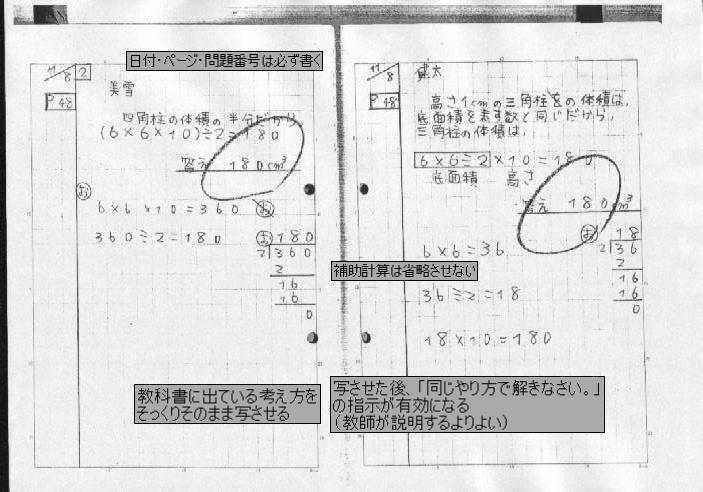 日付・ページ・問題番号は必ず書く
11/8 2
P48
美雪
四角柱の体積の半分だから
(6×6×10)÷2=180
答え 180cm³
お
6×6×10=360
360÷2=180
お 180
2 360
2
16
16
0
教科書に出ている考え方を
そっくりそのまま写させる
11/8
P48
健太
高さ1cmの三角柱をの体積は、
底面積を表す数と同じだから、
三角柱の体積は、
6×6÷2×10=180
底面積 高さ
答え 180cm³
補助計算は省略させない
6×6=36
36÷2=18
18×10=180
お 18
2 36
2
16
16
0
写させた後、「同じやり方で解きなさい。」
の指示が有効になる
(教師が説明するよりよい)